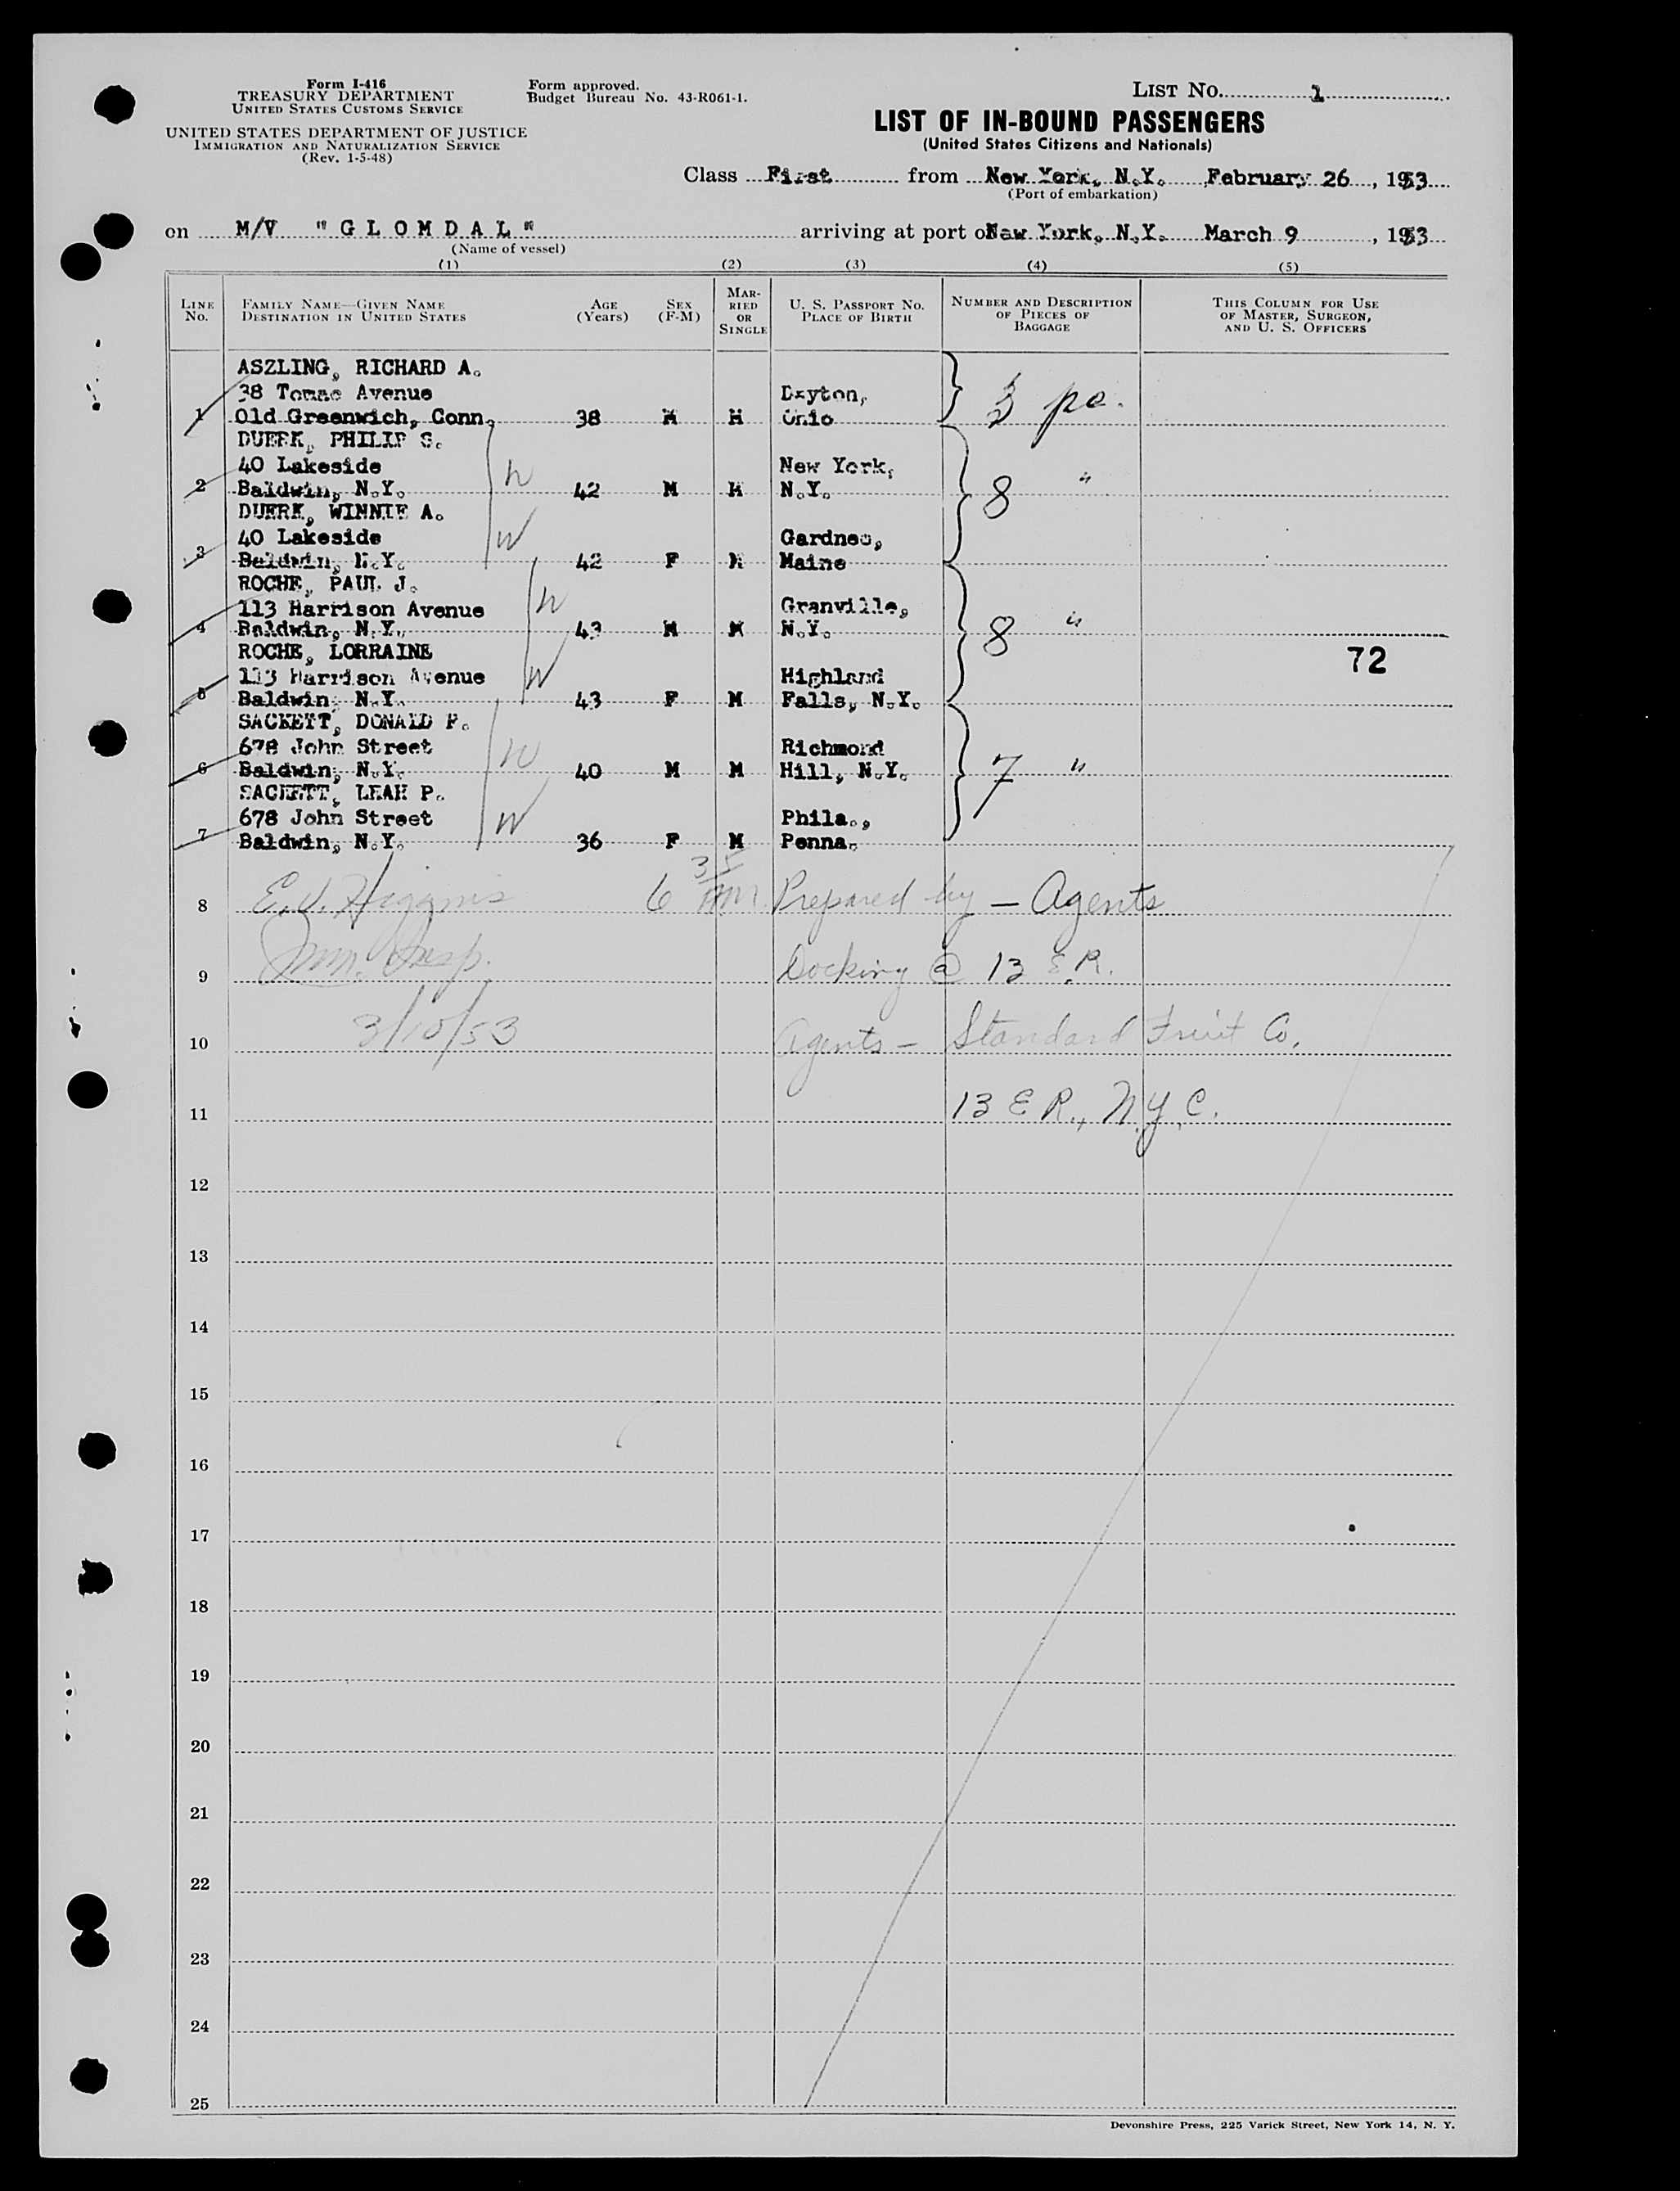 Form I-416
TREASURY DEPARTMENT
UNITED STATES CUSTOMS SERVICE
UNITED STATES DEPARTMENT OF JUSTICE
IMMIGRATION AND NATURALIZATION SERVICE
(Rev. 1-5-48)
Form approved.
Budget Bureau No. 43-R061-1.
LIST NO. 1
LIST OF IN-BOUND PASSENGERS
(United States Citizens and Nationals)
Class First from New York, N.Y. February 26, 1953
(Port of embarkation)
on M/V "GLOMDAL" arriving at port of New York, N.Y. March 9, 1953
(Name of vessel)
(1) (2) (3) (4) (5)
LINE NO.
FAMILY NAME—GIVEN NAME
DESTINATION IN UNITED STATES
AGE (Years)
SEX (F-M)
MARRIED OR SINGLE
U. S. PASSPORT NO.
PLACE OF BIRTH
NUMBER AND DESCRIPTION OF PIECES OF BAGGAGE
THIS COLUMN FOR USE OF MASTER, SURGEON, AND U. S. OFFICERS
ASZLING, RICHARD A.
38 Tomac Avenue Dayton,
1 Old Greenwich, Conn. 38 M M Ohio 3 pc.
DUERK, PHILIP S.
40 Lakeside W New York,
2 Baldwin, N.Y. 42 M M N.Y. 8 "
DUERK, WINNIE A.
40 Lakeside W Gardner,
3 Baldwin, N.Y. 42 F M Maine
ROCHE, PAUL J.
113 Harrison Avenue W Granville,
4 Baldwin, N.Y. 43 M M N.Y. 8 "
ROCHE, LORRAINE 72
113 Harrison Avenue W Highland
5 Baldwin, N.Y. 43 F M Falls, N.Y.
SACKETT, DONALD F.
678 John Street W Richmond
6 Baldwin, N.Y. 40 M M Hill, N.Y. 7 "
SACKETT, LEAH P.
678 John Street W Phila.,
7 Baldwin, N.Y. 36 F M Penna.
8 E. J. Higgins 6 35 AM Prepared by — Agents
9 Imm. Insp. Docking @ 13 E.R.
10 3/10/53 Agents — Standard Fruit Co.
11 13 E R., N.Y.C.
12
13
14
15
16
17
18
19
20
21
22
23
24
25
Devonshire Press, 225 Varick Street, New York 14, N. Y.